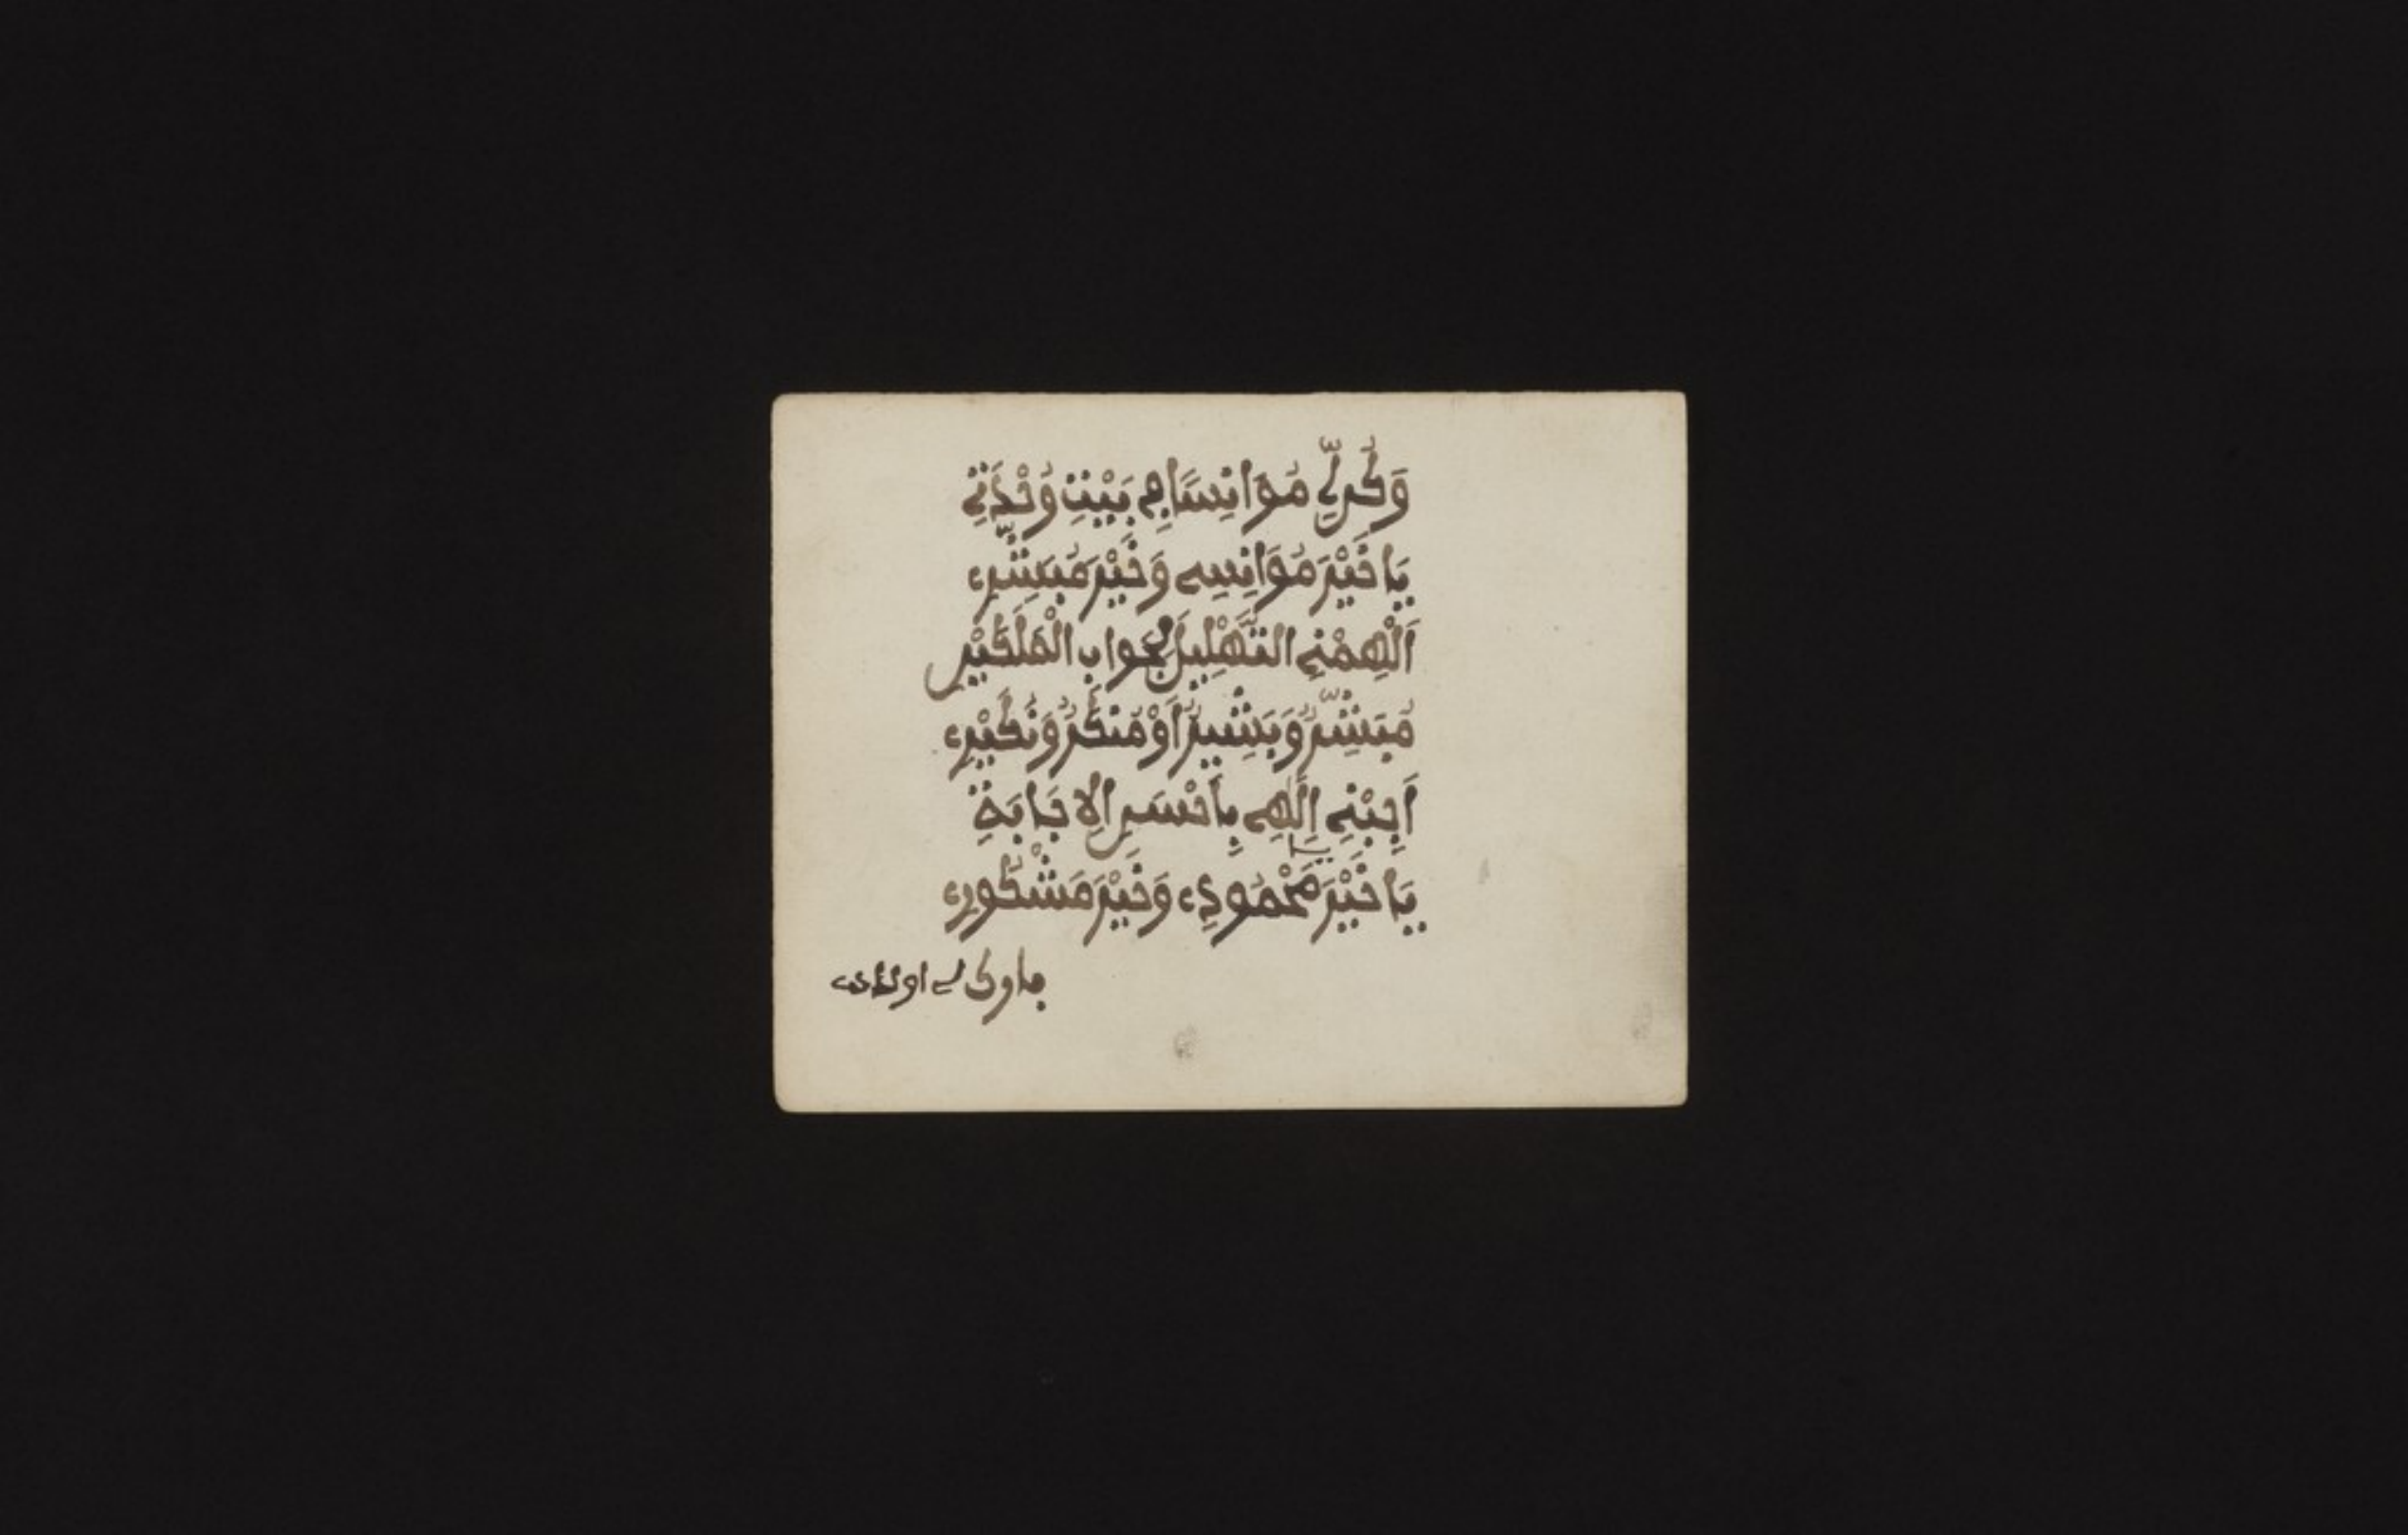 وَكُن لِّي مُوَانِسًا فِي بَيْتِ وَحْدَتِي
يَا خَيْرَ مُوَانِسِي وَخَيْرَ مُبَشِّرِي
اَلْهِمْنِي التَّهْلِيلَ لِجَوَابِ الْمَلَكَيْنِ
مُبَشِّرٌ وَبَشِيرٌ اَوْ مُنكَرٌ وَنَكِيْرِي
اَجِبْنِي اِلَهِي بِاَحْسَنِ الِاجَابَةِ
يَا خَيْرَ مَحْمُودِي وَخَيْرَ مَشْكُورِي
باول